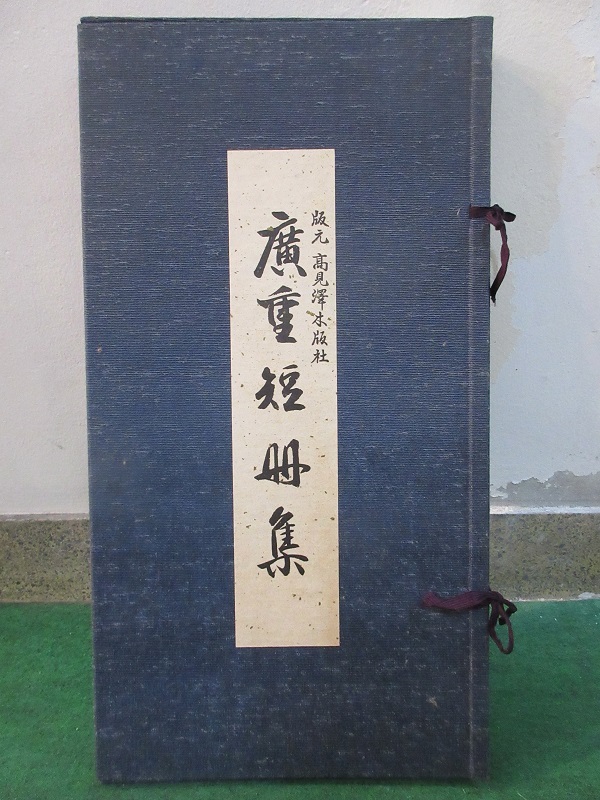 版元 高見澤木版社
廣重短冊集